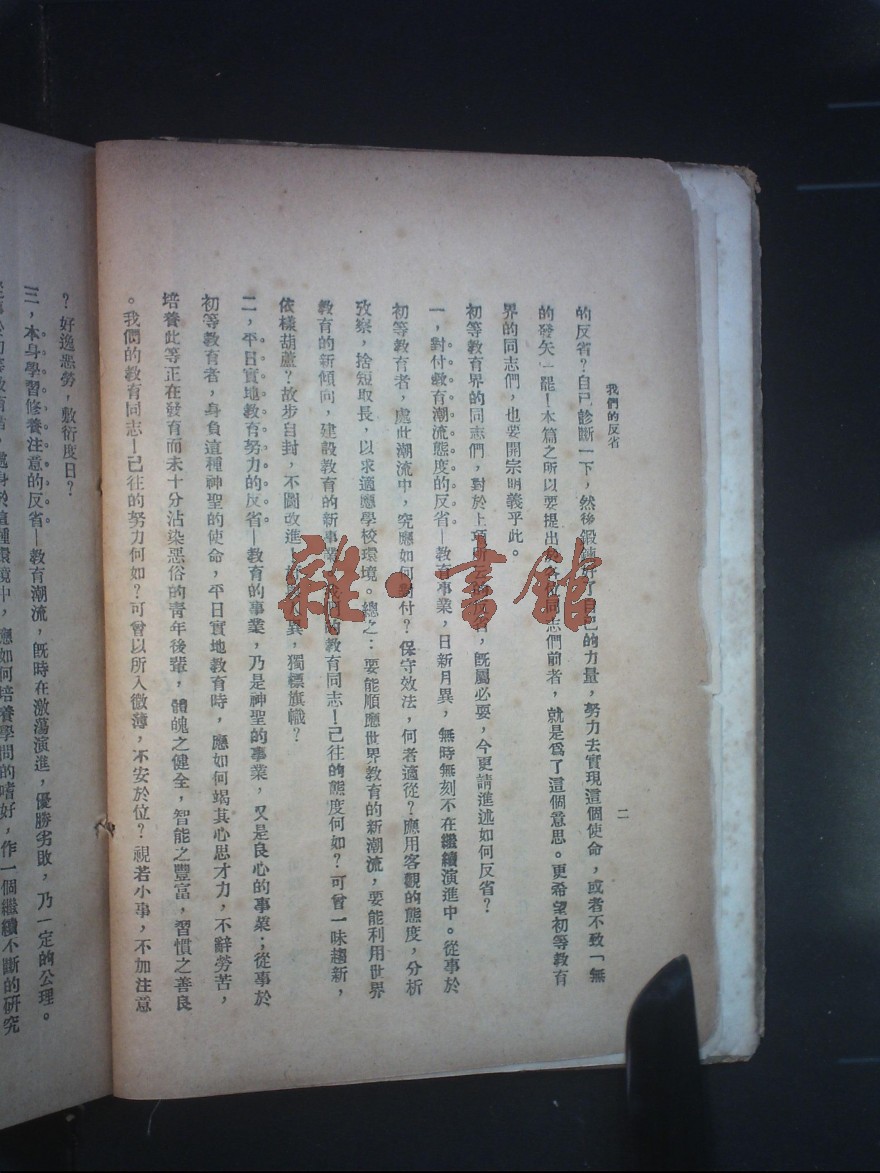 我們的反省
二
的反省？自己診斷一下，然後鍛鍊好了自己的力量，努力去實現這個使命，或者不致「無
的發矢」罷！本篇之所以要提出於各位同志們前者，就是爲了這個意思。更希望初等教育
界的同志們，也要開宗明義乎此。
初等教育界的同志們，對於上項所云的反省，既屬必要，今更請進述如何反省？
一，對付教育潮流態度的反省—教育事業，日新月異，無時無刻不在繼續演進中。從事於
初等教育者，處此潮流中，究應如何對付？保守效法，何者適從？應用客觀的態度，分析
攷察，捨短取長，以求適應學校環境。總之：要能順應世界教育的新潮流，要能利用世界
教育的新傾向，建設教育的新事業。我們的教育同志！已往的態度何如？可曾一味趨新，
依樣葫蘆？故步自封，不圖改進！異，獨標旗幟？
二，平日實地教育努力的反省—教育的事業，乃是神聖的事業，又是良心的事業；從事於
初等教育者，身負這種神聖的使命，平日實地教育時，應如何竭其心思才力，不辭勞苦，
培養此等正在發育而未十分沾染惡俗的青年後輩，體魄之健全，智能之豐富，習慣之善良
。我們的教育同志！已往的努力何如？可曾以所入微薄，不安於位？視若小事，不加注意
？好逸惡勞，敷衍度日？
三，本身學習修養注意的反省—教育潮流，既時在激荡演進，優勝劣敗，乃一定的公理。
教育者，處身於這種環境中，應如何培養學問的嗜好，作一個繼續不斷的研究
雜·書館